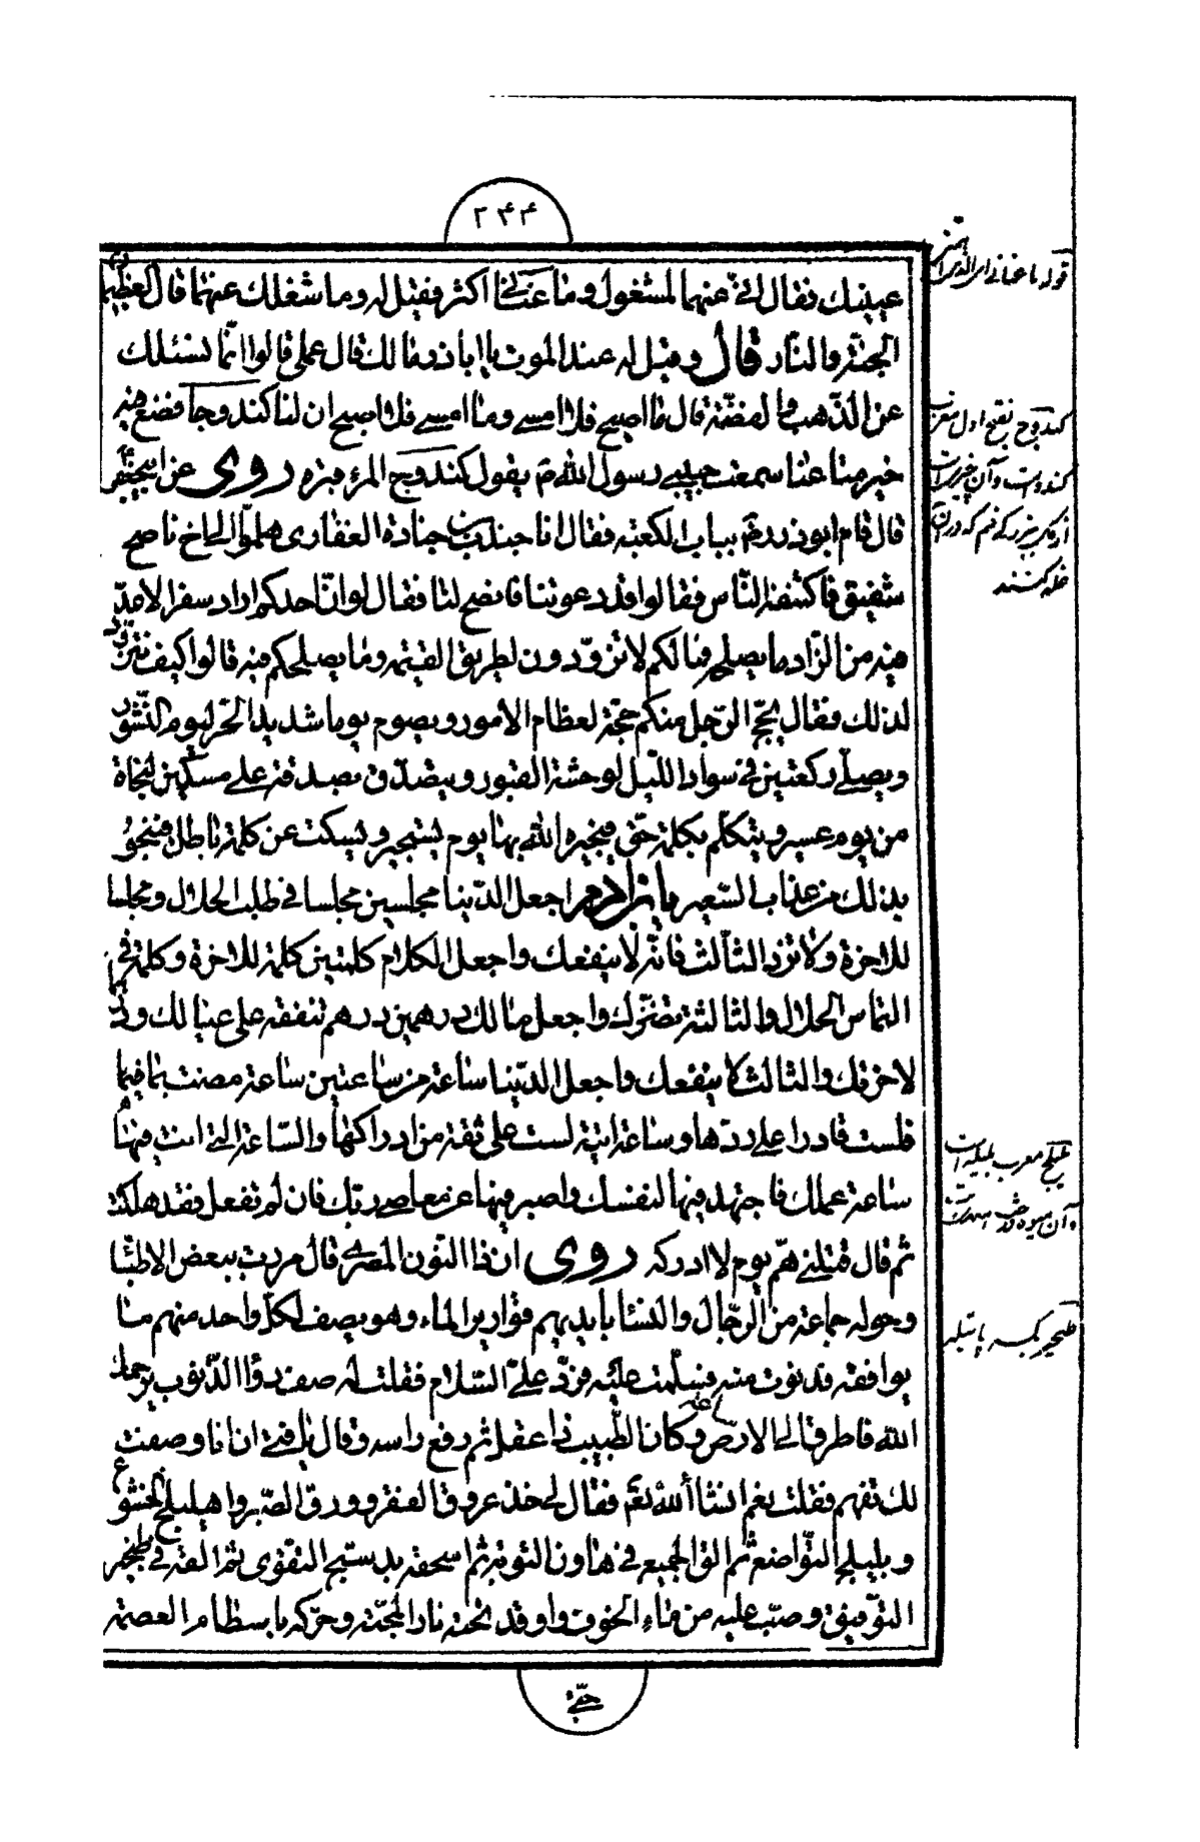 ۲۴۴
عينيك فقال انّى عنهما لمشغول وما عنانى اكثر فقيل له وما شغلك عنهما قال العظيمتان
الجنّة والنّار قال وقيل له عند الموت يا اباذر ما لك قال عملى قالوا انّما نسئلك
عن الذّهب والفضّة قال ما اصبح فلا امسى وما امسى فلا اصبح ان لنا كندوجا فضع فيه
خير متاعنا سمعت حبيبى رسول الله ص يقول كندوج المرء قبره روى عن ابيجعفر ع
قال قام ابوذر ره بباب الكعبة فقال انا جندب بن جنادة الغفارى هلمّوا الى اخ ناصح
شفيق فاكتنفه النّاس فقالوا قد دعوتنا فانصح لنا فقال لو انّ احدكم اراد سفرا لاعدّ
فيه من الزّاد ما يصلحه فما لكم لا تزوّدون لطريق القيمة وما يصلحكم فيه قالوا كيف نتزوّد
لذلك فقال يحجّ الرّجل منكم حجّة لعظام الامور ويصوم يوما شديد الحرّ ليوم النّشور
ويصلّى ركعتين فى سواد اللّيل لوحشة القبور ويتصدّق بصدقة على مسكين لنجاة
من يوم عسير ويتكلّم بكلمة حقّ فيجيره الله بها يوم يستجير ويسكت عن كلمة باطل فينجو
بذلك من عذاب السّعير يابن ادم اجعل الدّنيا مجلسين مجلسا فى طلب الحلال ومجلسا
للاخرة ولا تزد الثّالث فانّه لا ينفعك واجعل الكلام كلمتين كلمة للاخرة وكلمة فى
التماس الحلال والثالثة تضرّك واجعل مالك درهمين درهم تنفقه على عيالك ودرهما
لاخرتك والثالث لا ينفعك واجعل الدّنيا ساعة من ساعتين ساعة مضت بما فيها
فلست قادرا على ردّها وساعة اتية لست على ثقة من ادراكها والسّاعة الّتى انت فيها
ساعة عملك فاجتهد فيها لنفسك واصبر فيها عن معاصى ربّك فان لم تفعل فقد هلكت
ثم قال قتلنى همّ يوم لا ادركه روى ان ذا النّون المصرى قال مررت ببعض الاطبّاء
وحوله جماعة من الرّجال والنّساء بايديهم قوارير الماء وهو يصف لكلّ واحد منهم ما
يوافقه فدنوت منه فسلّمت عليه فردّ علىّ السّلام فقلت له صف دواء الذّنوب يرحمك
الله فاطرق الى الارض ساعة وكان الطّبيب ذا عقل ثم رفع راسه وقال يا فتى ان انا وصفت
لك تفهم فقلت نعم انشاء الله تع فقال لى خذ عروق الفقر وورق الصّبر واهليلج الخشوع
وبليلج التّواضع ثم الق الجميع فى هاون التوبة ثم اسحقه بدستج التقوى ثم القه فى طنجير
التّوفيق وصبّ عليه من ماء الخوف واوقد تحته نار المحبّة وحرّكه باسطام العصمة
حتّى
كندوج بفتح اول معرب
كندوست وآن چيزيست
غله كنند
بليلج معرب بليله است